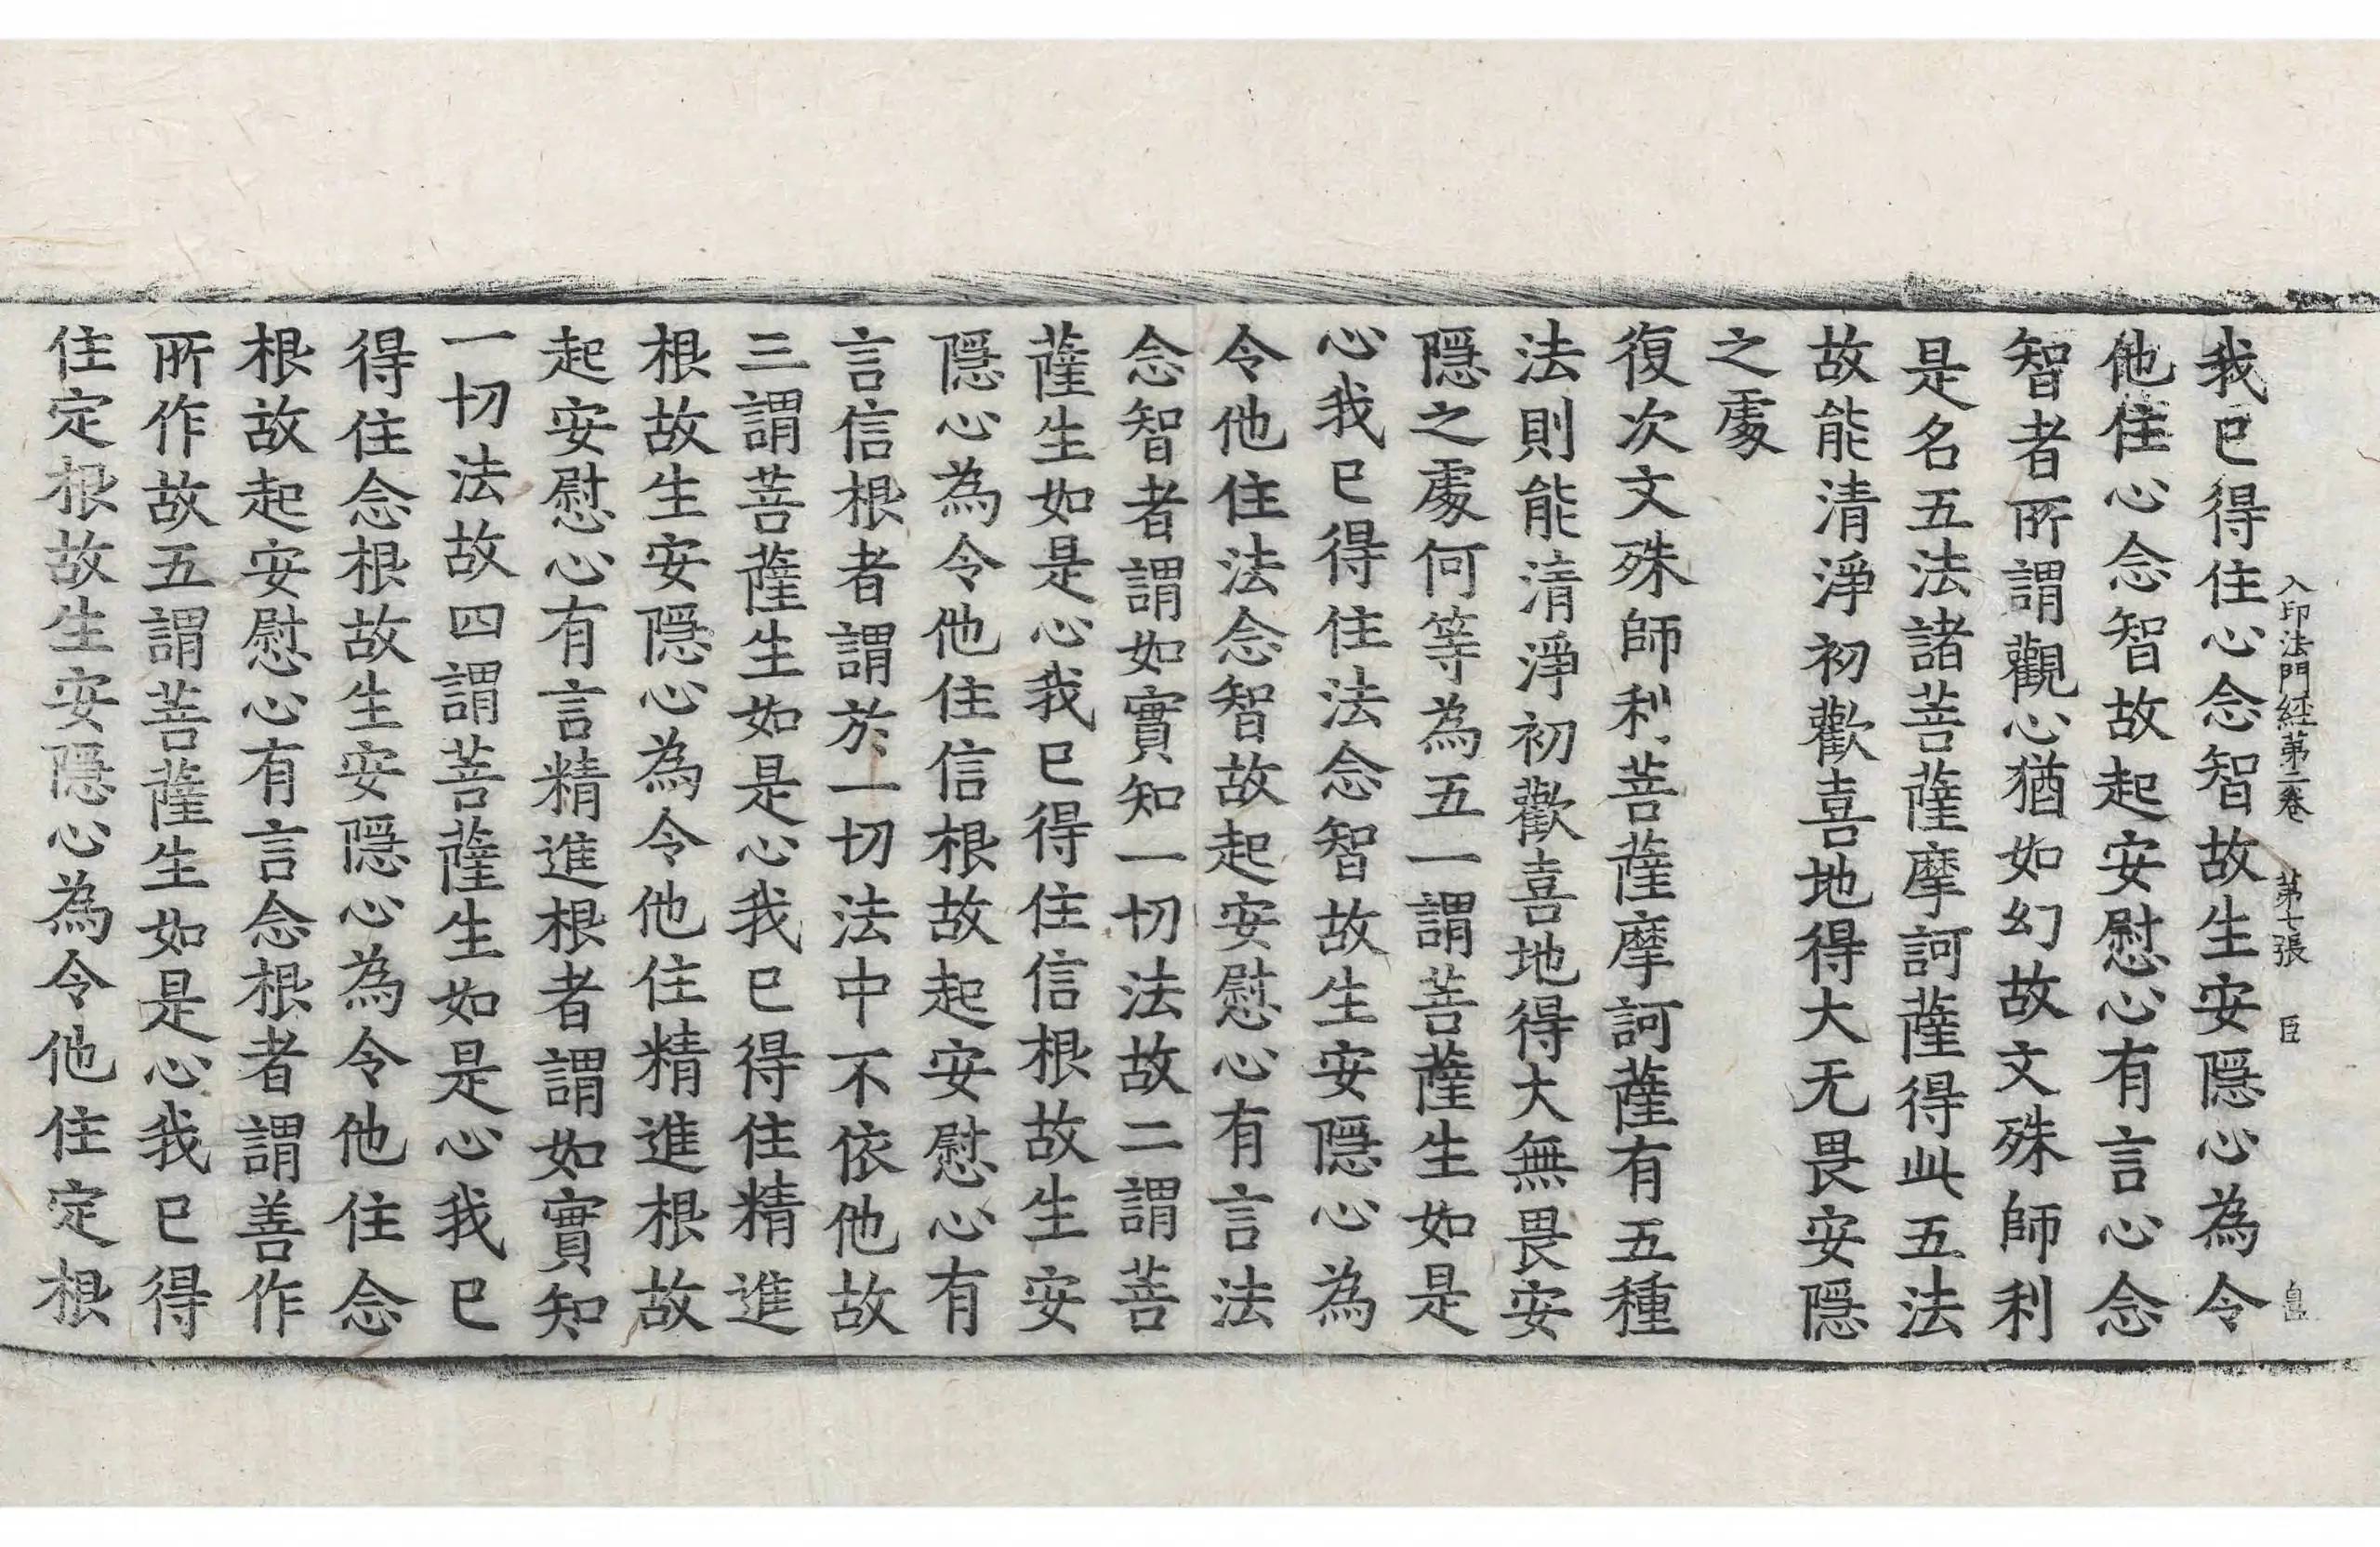 入印法門経第二卷 第七張 臣
我已得住心念智故生安隱心為令
他住心念智故起安慰心有言心念
智者所謂觀心猶如幻故文殊師利
是名五法諸菩薩摩訶薩得此五法
故能清淨初歡喜地得大无畏安隱
之處
復次文殊師利菩薩摩訶薩有五種
法則能清淨初歡喜地得大無畏安
隱之處何等為五一謂菩薩生如是
心我已得住法念智故生安隱心為
令他住法念智故起安慰心有言法
念智者謂如實知一切法故二謂菩
薩生如是心我已得住信根故生安
隱心為令他住信根故起安慰心有
言信根者謂於一切法中不依他故
三謂菩薩生如是心我已得住精進
根故生安隱心為令他住精進根故
起安慰心有言精進根者謂如實知
一切法故四謂菩薩生如是心我已
得住念根故生安隱心為令他住念
根故起安慰心有言念根者謂善作
所作故五謂菩薩生如是心我已得
住定根故生安隱心為令他住定根